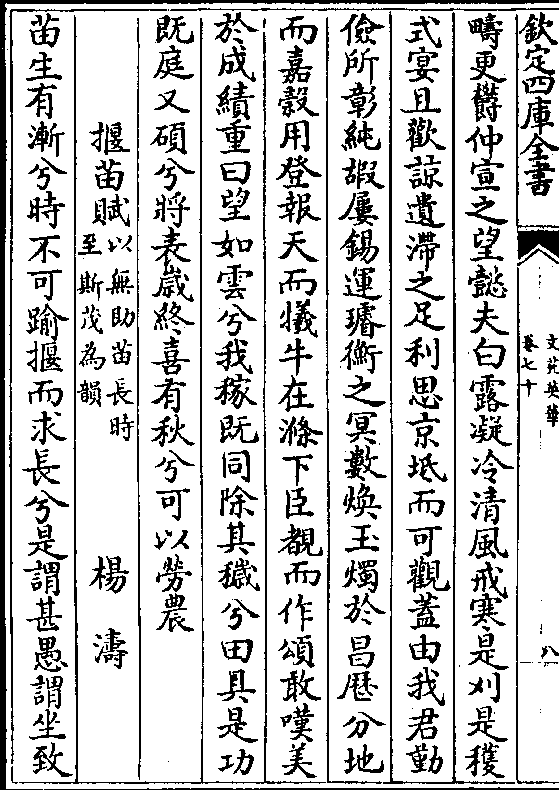 欽定四庫全書
文苑英華
卷七十
八
疇更欝仲宣之望懿夫白露凝冷清風戒寒是刈是穫
式宴且歡諒遺滯之足利思京坻而可觀蓋由我君勤
儉所彰純嘏屢錫運璿衡之冥數煥玉燭於昌厯分地
而嘉穀用登報天而犧牛在滌下臣覩而作頌敢嘆美
於成績重曰望如雲兮我稼既同除其穢兮田具是功
既庭又碩兮將表歲終喜有秋兮可以勞農
揠苗賦以無助苗長時至斯茂為韻 楊濤
苗生有漸兮時不可踰揠而求長兮是謂甚愚謂坐致